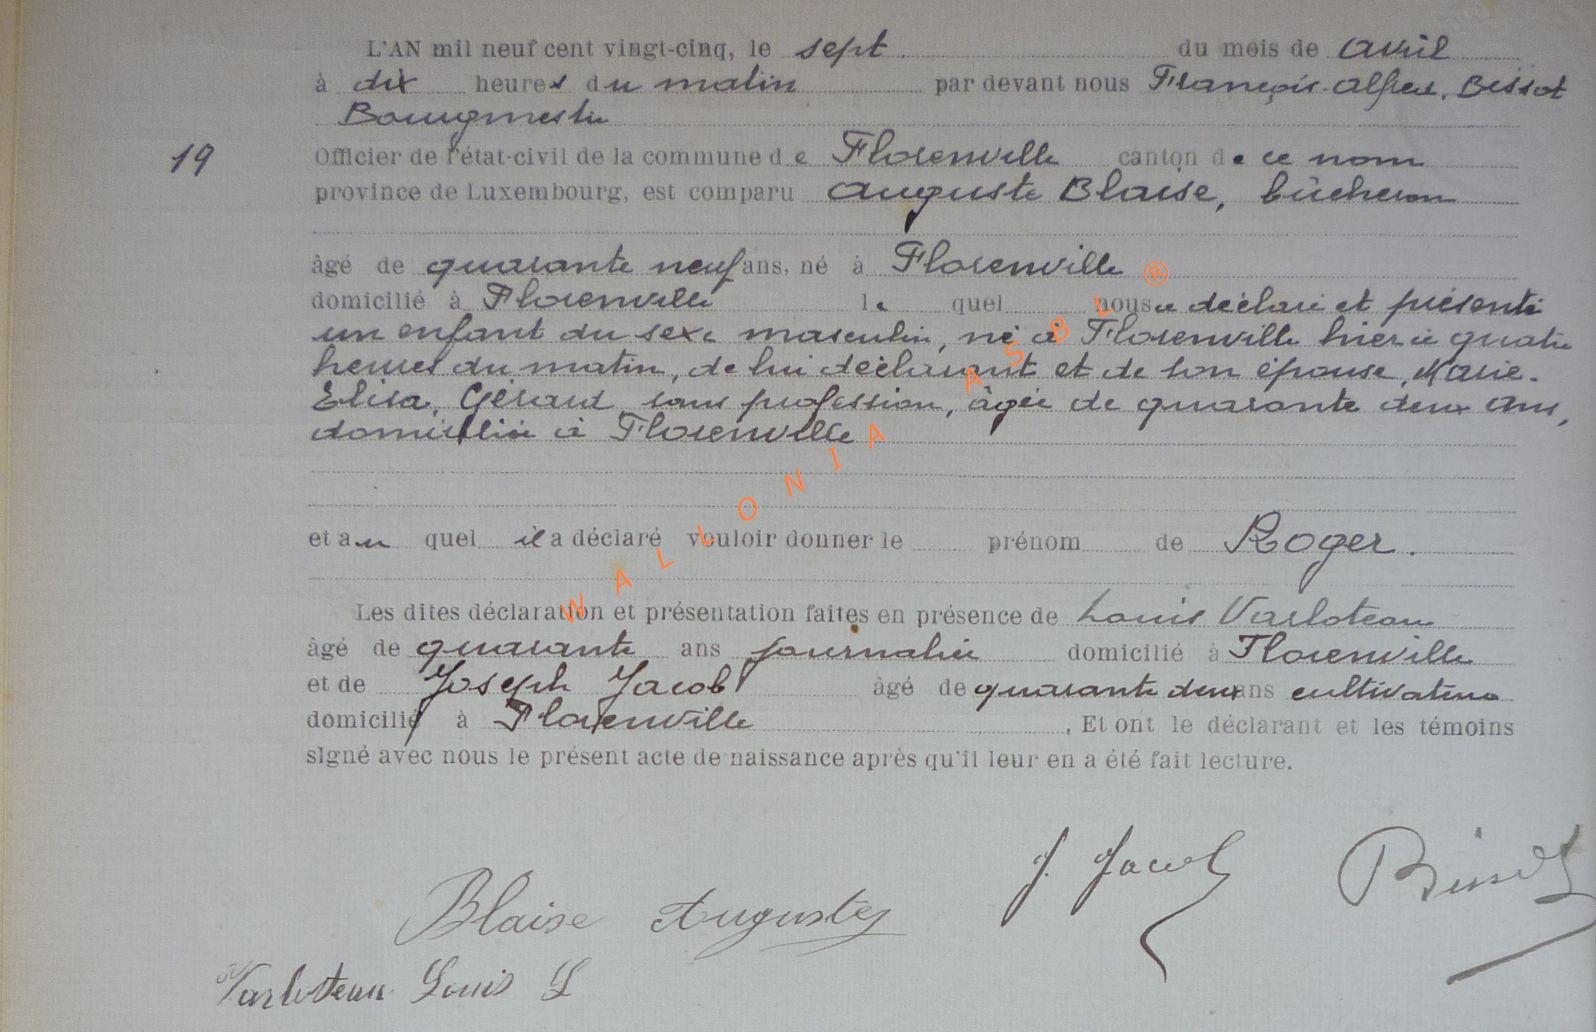 L'AN mil neuf cent vingt-cinq, le sept. du mois de avril
à dix heures du matin par devant nous François-Alfred. Bissot
Bourgmestre
19 Officier de l'état-civil de la commune de Florenville canton de ce nom
province de Luxembourg, est comparu Auguste Blaise, bûcheron
âgé de quarante neuf ans, né à Florenville
domicilié à Florenville le quel nous a déclaré et présenté
un enfant du sexe masculin, né à Florenville hier à quatre
heures du matin, de lui déclarant et de son épouse, Marie-
Elisa, Gérard sans profession, âgée de quarante deux ans,
domiciliée à Florenville
et au quel il a déclaré vouloir donner le prénom de Roger.
Les dites déclaration et présentation faites en présence de Louis Varloteau
âgé de quarante ans journalier domicilié à Florenville
et de Joseph Jacob âgé de quarante deux ans cultivateur
domicilié à Florenville, Et ont le déclarant et les témoins
signé avec nous le présent acte de naissance après qu'il leur en a été fait lecture.
J. Jacob Bissot
Blaise Auguste
Varloteau Louis
WALLONIA ASBL ®